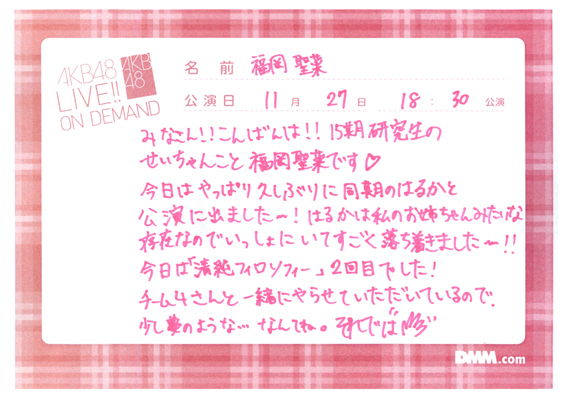 AKB48
LIVE!!
ON DEMAND
AKB
48
名 前 福岡 聖菜
公演日 11月 27日 18:30 公演
みなさん!!こんばんは!! 15期研究生の
せいちゃんこと 福岡聖菜です♡
今日は やっぱり 久しぶりに 同期のはるかと
公演に出ました〜! はるかは私のお姉ちゃんみたいな
存在なのでいっしょに いてすごく落ち着きました〜!!
今日は「清純フィロソフィー」2回目でした!
チーム4さんと 一緒にやらせていただいているので、
少し夢のような… なんてね。 それでは
DMM.com